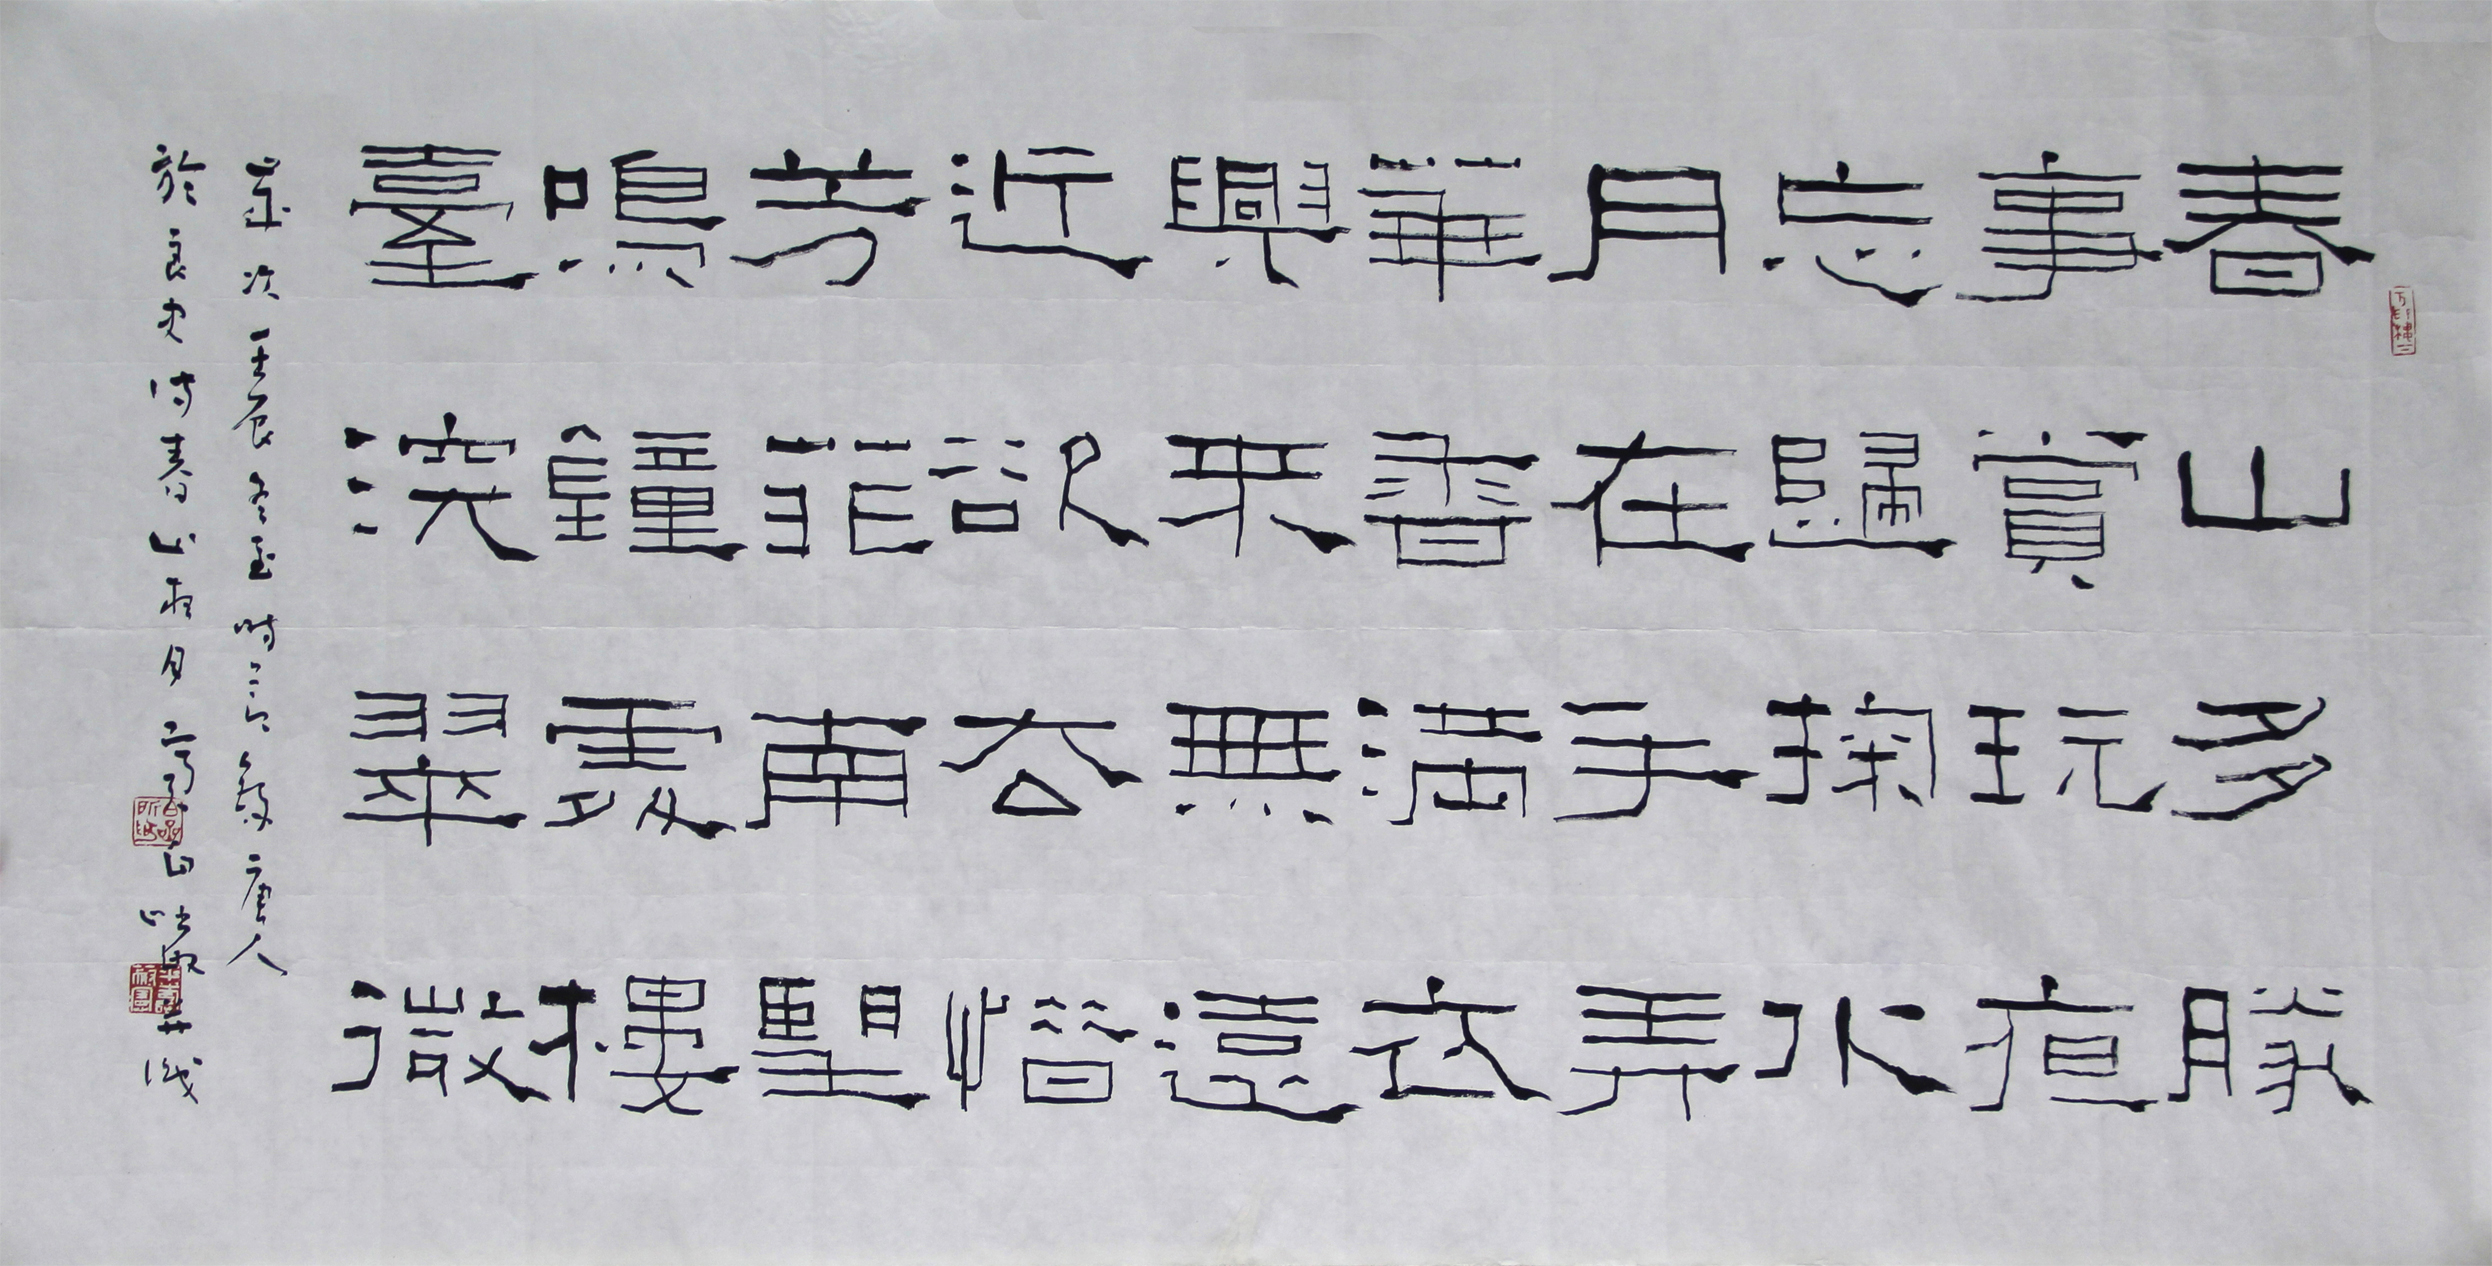 春山多勝
事賞玩夜
忘歸掬水
月在手弄
華香滿衣
興來無遠
近欲去惜
芳菲南望
鳴鐘處樓
臺深翠微
歲次壬辰冬至時唐人
於良史詩春山夜月